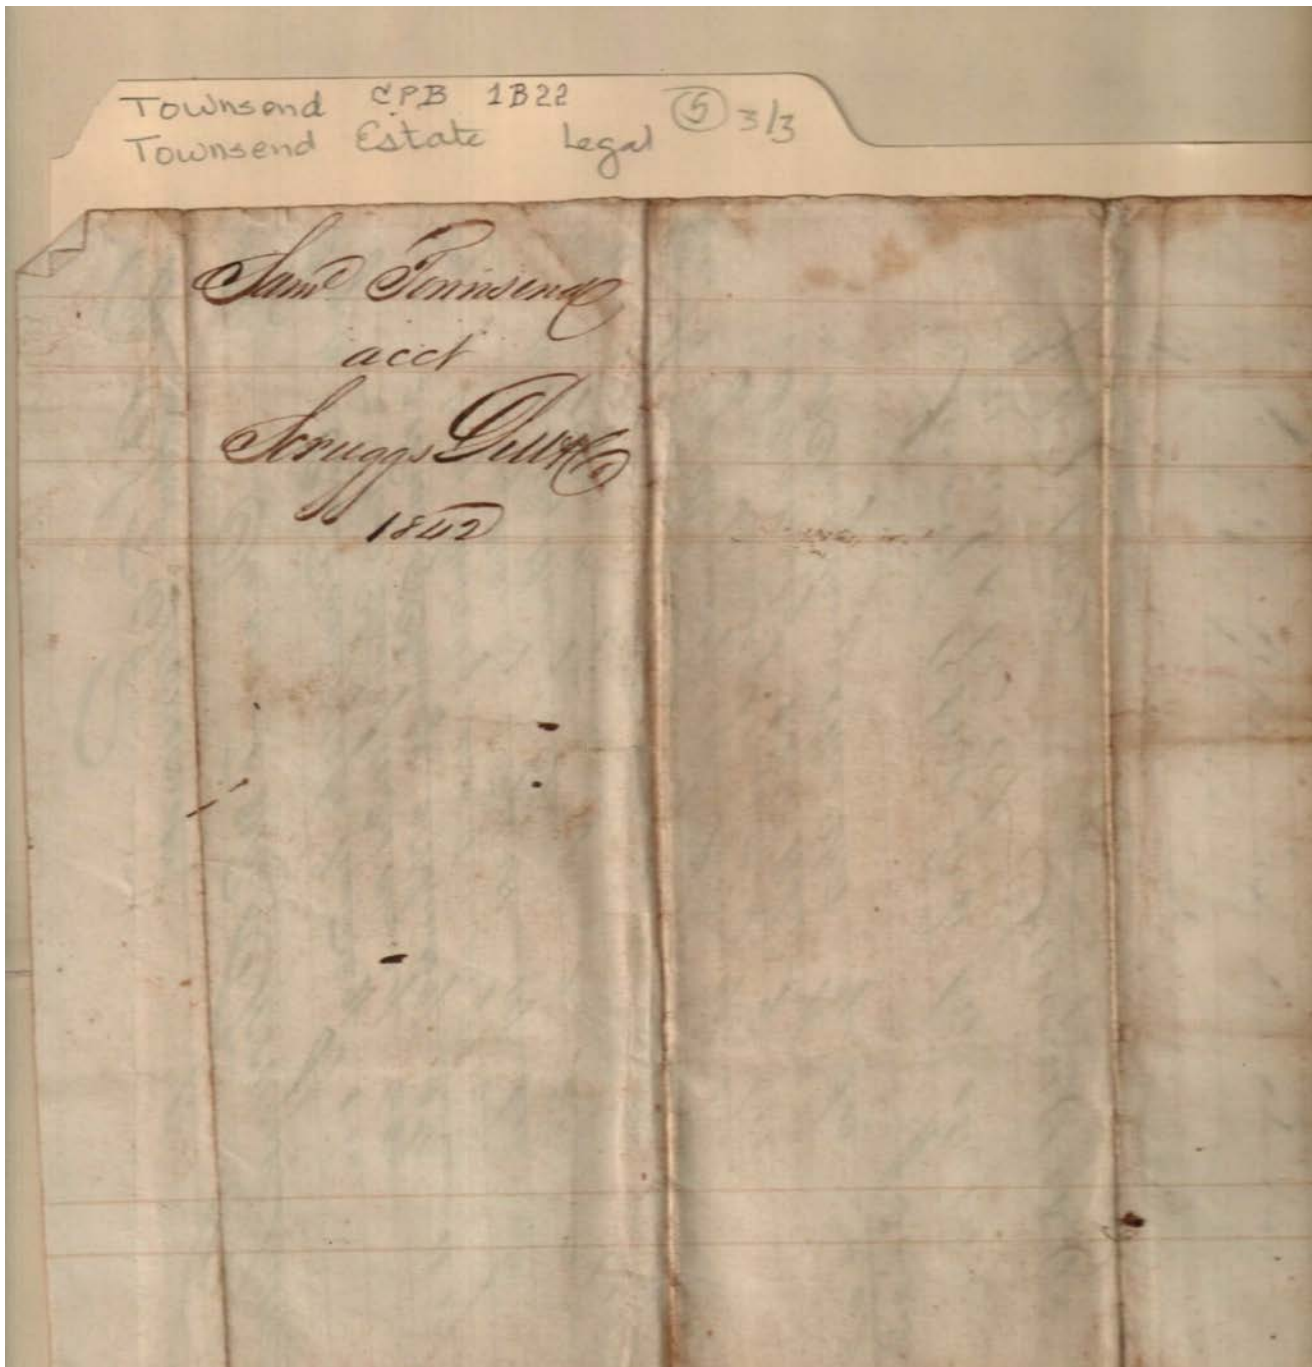 Townsend CPB 1B22 ⑤ 3/3
Townsend Estate Legal
Saml Townsend
acct
Scruggs
1842